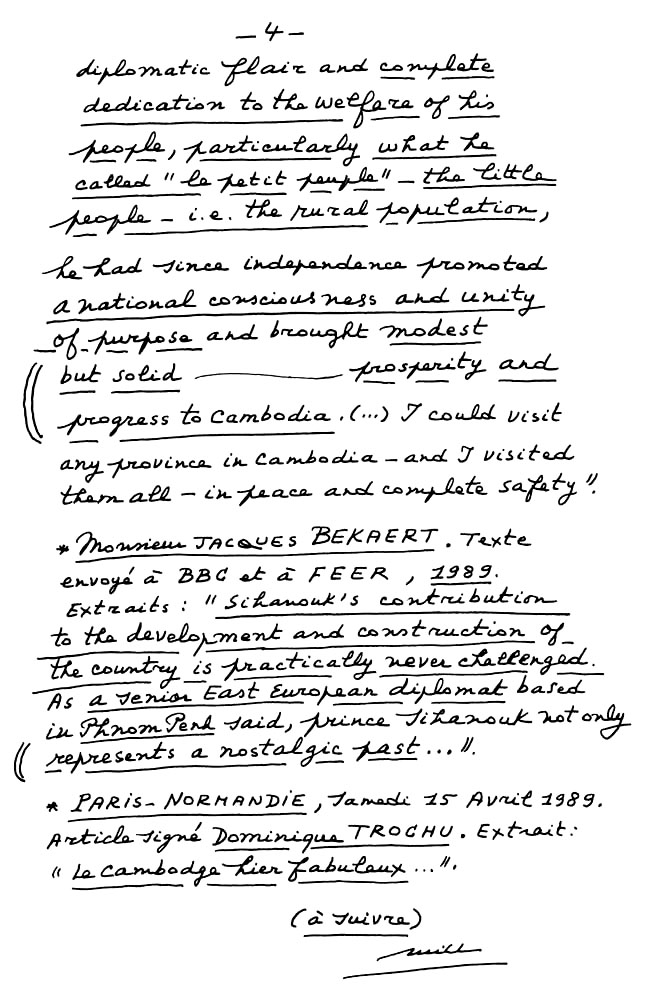 — 4 —
diplomatic flair and complete
dedication to the welfare of his
people, particularly what he
called "le petit peuple" — the little
people — i.e. the rural population,
he had since independence promoted
a national consciousness and unity
of purpose and brought modest
but solid ———— prosperity and
progress to Cambodia. (...) I could visit
any province in Cambodia — and I visited
them all — in peace and complete safety".
* Monsieur JACQUES BEKAERT. Texte
envoyé à BBC et à FEER, 1989.
Extraits : "Sihanouk's contribution
to the development and construction of
the country is practically never challenged.
As a senior East European diplomat based
in Phnom Penh said, prince Sihanouk not only
represents a nostalgic past ...".
* PARIS-NORMANDIE, Samedi 15 Avril 1989.
Article signé Dominique TROCHU. Extrait :
"Le Cambodge hier fabuleux ...".
(à suivre)